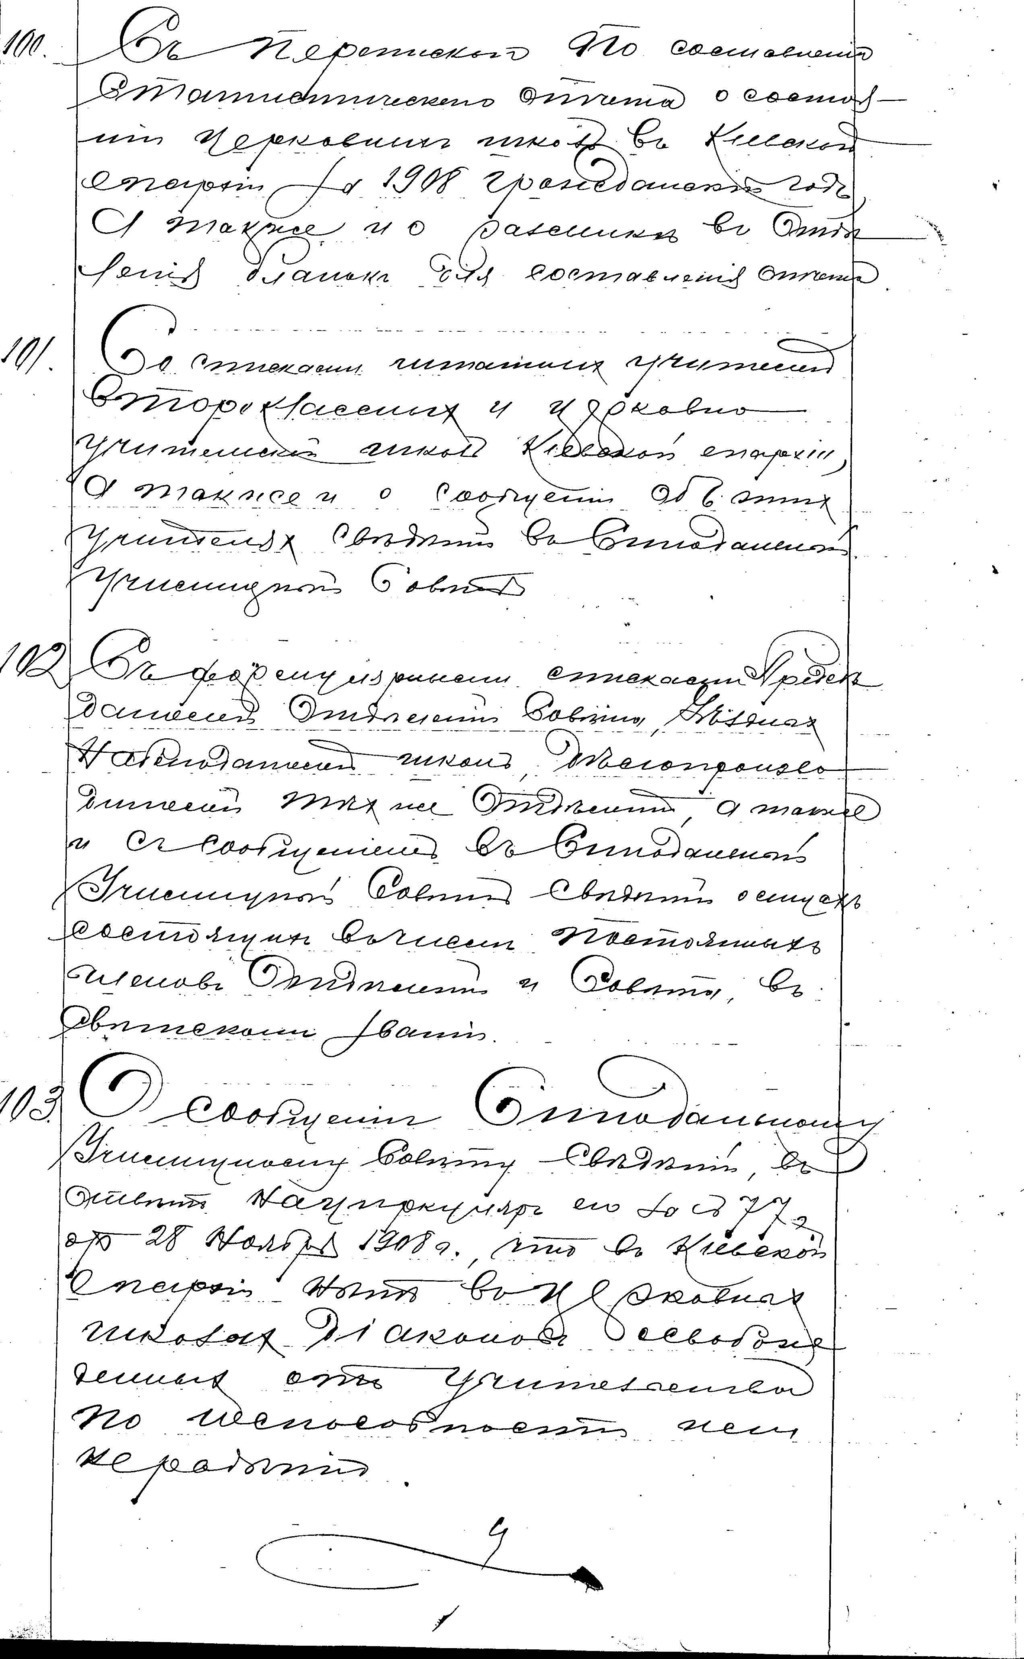 100. Съ перепиской по составленію
Статистическаго отчета о состоя-
ніи церковныхъ школъ въ Кіевской
епархіи за 1908 гражданскій годъ,
А также и о разсылкѣ въ Отдѣ
ленія бланокъ для составленія отчета
101. Со списками штатныхъ учителей
Второклассныхъ и церковно
учительской школъ Кіевской епархіи,
А также и о сообщеніи объ этихъ
учителяхъ свѣдѣній въ Синодальный
Училищный Совѣтъ
102 Съ формулярными списками Предсѣ
дателей Отдѣленій Совѣта, Уѣздныхъ
Наблюдателей школъ, Дѣлопроизво
дителей тѣхже Отдѣленій, А также
и съ сообщеніемъ въ Синодальный
Училищный Совѣтъ свѣдѣній о лицахъ
состоящихъ въ числѣ постоянныхъ
членовъ Отдѣленій и Совѣта, въ
свѣтскомъ званіи.
103. О сообщеніи Синодальному
Училищному Совѣту свѣдѣній, въ
отвѣтъ на циркуляръ его за № 77
отъ 28 Ноября 1908 г., что въ Кіевской
Епархіи нѣтъ въ церковныхъ
школахъ Діаконовъ освобож
денныхъ отъ учительства
по неспособности или
нерадѣнію.